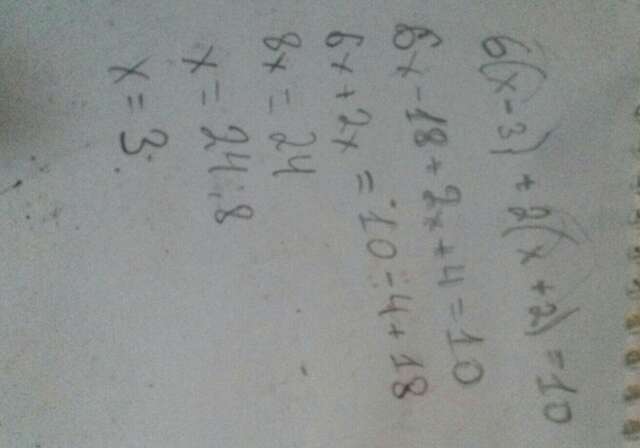 6(x-3)+2(x+2)=10
6x-18+2x+4=10
6x+2x=10-4+18
8x=24
x=24:8
x=3.